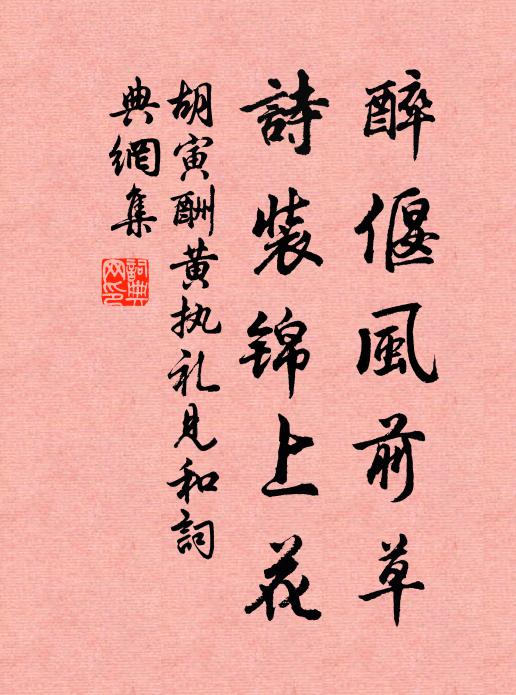 醉偃風前草
詩裝錦上花
胡寅酬黄执礼見和詞
典網集
詞典網印